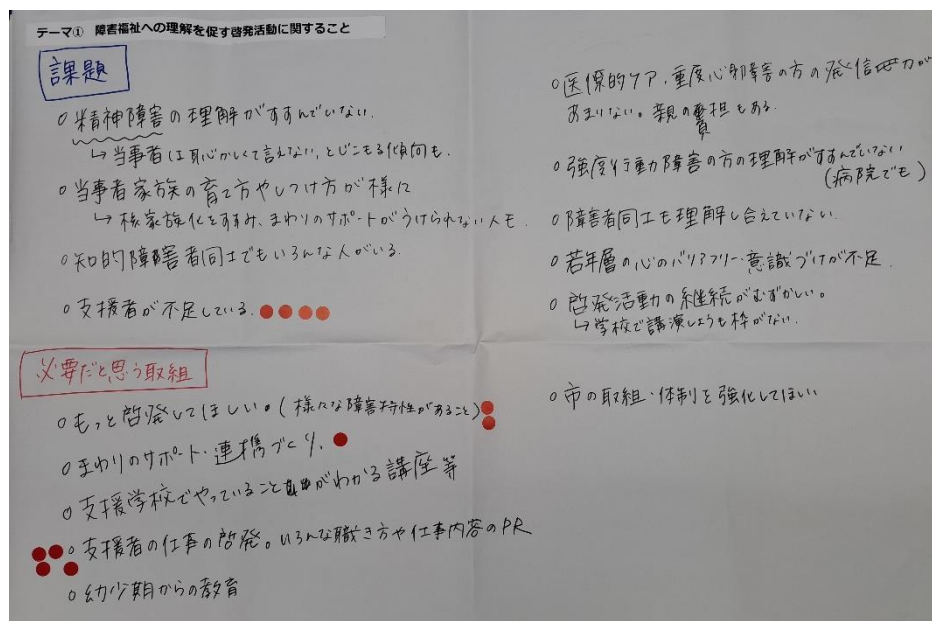 テーマ① 障害福祉への理解を促す啓発活動に関すること
課題
○精神障害の理解がすすんでいない。
↳当事者は恥かしくて言えない、とじこもる傾向も.
○当事者家族の育て方やしつけ方が様々
↳核家族化とすすみ、まわりのサポートがうけられない人も.
○知的障害者同士でもいろんな人がいる.
○支援者が不足している.
○医療的ケア、重度心身障害の方の発信力が
あまりない。親の負担もある.
○強度行動障害の方の理解がすすんでいない
(病院でも)
○障害者同士も理解し合えていない.
○若年層の心のバリアフリー・意識づけが不足.
○啓発活動の継続がむずかしい。
↳学校で講演しようも枠がない.
必要だと思う取組
○もっと啓発してほしい。(様々な障害特性があること)
○まわりのサポート・連携づくり.
○支援学校でやっていることがわかる講座等
○支援者の仕事の啓発。いろんな働き方や仕事内容のPR
○幼少期からの教育
○市の取組・体制を強化してほしい